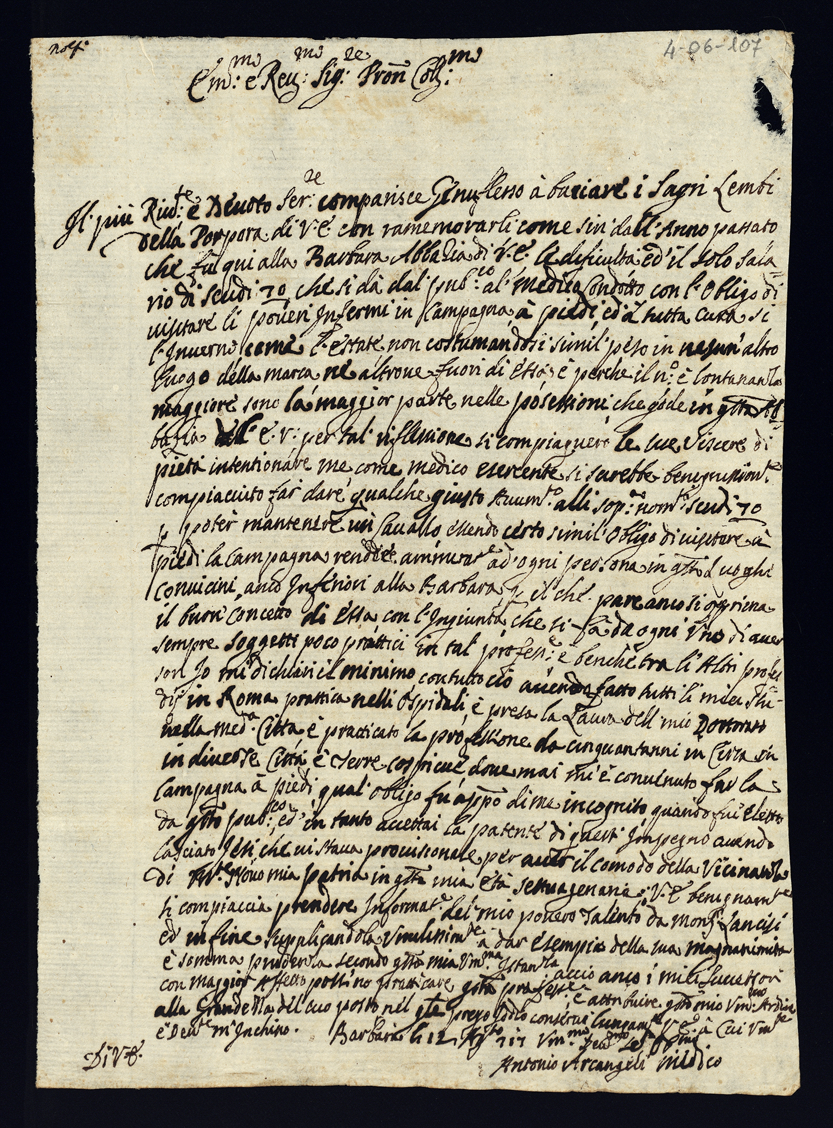 4-06-107
Em.mo e Reu.mo Sig.re Pron Coll.mo
Il più Riu.te e Deuoto Ser.re comparisce Genuflesso à baciare i Sagri Lembi
della Porpora di V.E. con ramemorarli come sin' dall'Anno passato
che fu qui alla Barbara Abbazia di V.E. le dificultà ed' il solo sala-
rio di scudi 70 che si dà dal pub.co al' medico condotto con l'obligo di
uisitare li poueri Infermi in Campagna à piedi, ed à tutta cura si
l'Inuerno come l'estate non costumandosi simil' peso in nesun' altro
luogo della marca ne altroue fuori di essa; è perche il n.o è lontananza
maggiore sono la maggior parte nelle possessioni che gode in gsta Ab-
bazia E.V. per tal' riflessione si compiaquero le sue Viscere di
pietà intentionare me come medico esercente si sarebbe benegnissim.te
compiaciuto far dare qualche giusto Aum.to alli sop.a nom.ti scudi 70
p poter mantenere un Cauallo essendo certo simil' obligo di uisitare à
piedi la Campagna rendere ammirat.e ad' ogni persona in gsti Luoghi
conuicini, anco Inferiori alla Barbara p il che pare anco si opprima
il buon' concetto di essa con l'Ingiunta che si fa da ogni Uno di auer
sempre soggetti poco prattici in tal' profess.e è benche tra li Altri profes-
sori Io mi dichiari il minimo con tutto ciò auendo fatto tutti li miei Stu-
dij in Roma prattica nelli Ospidali è presa la Laura dell' mio Dottorato
nella med.a Città è practicato la professione da cinquantanni in Circa in
in diuerse Città è Terre cospicue doue mai mi è conuenuto far la
Campagna à piedi qual' obligo fu appo di me incognito quando fui eletto
da gsto pub.co, ed' in tanto accettai la patente di quest' Impegno auendo
lasciato Iesi, che ui staua prouisionale per auer il comodo della Vicinanza
di Nouo mia patria in gsta mia età settuagenaria; V.E. benignam.te
si compiaccia prendere Informat.e del' mio pouero Talento da Mons.r Lancisi
ed' in fine supplicandola Vmilissim.te à dar esempio della sua magnanimità
è somma prudenza secondo gsta mia Vm.ma Istanza acciò anco i miei Successori
con maggior Affetto possino pratticare gsta profess.e è attribuire gsto mio Vm.mo Ardire
alla Grandezza del suo posto nel prego Iddio conserui lungam.te V.E. à Cui Vm.te
è Deu.te m'Inchino. Barbara li 12 Ag.sto 717 Vm.mo Deu.mo
Di V.E. Antonio Arcangeli Medico